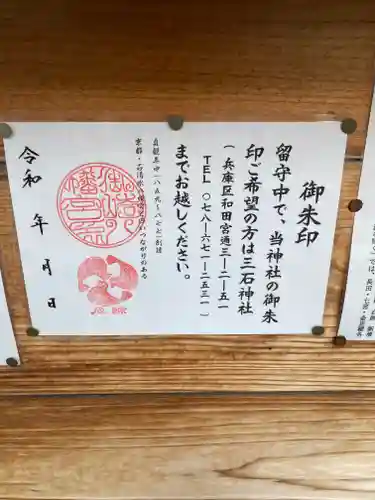 御朱印
留守中で、当神社の御朱
印ご希望の方は三石神社
(兵庫区和田宮通三ー二ー五一
TEL 〇七八ー六七一ー二五三一)
までお越しください。
貞観年中(八五九〜八七七)創建
京都・石清水八幡宮とのつながりのある
令和 年 月 日